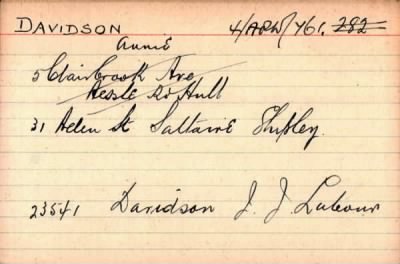 DAVIDSON 4/APW/761. 282
Annie
5 Clairbrook Ave
Hessle Rd Hull
31 Helen St Saltaire Shipley.
23541 Davidson J. J. Labour